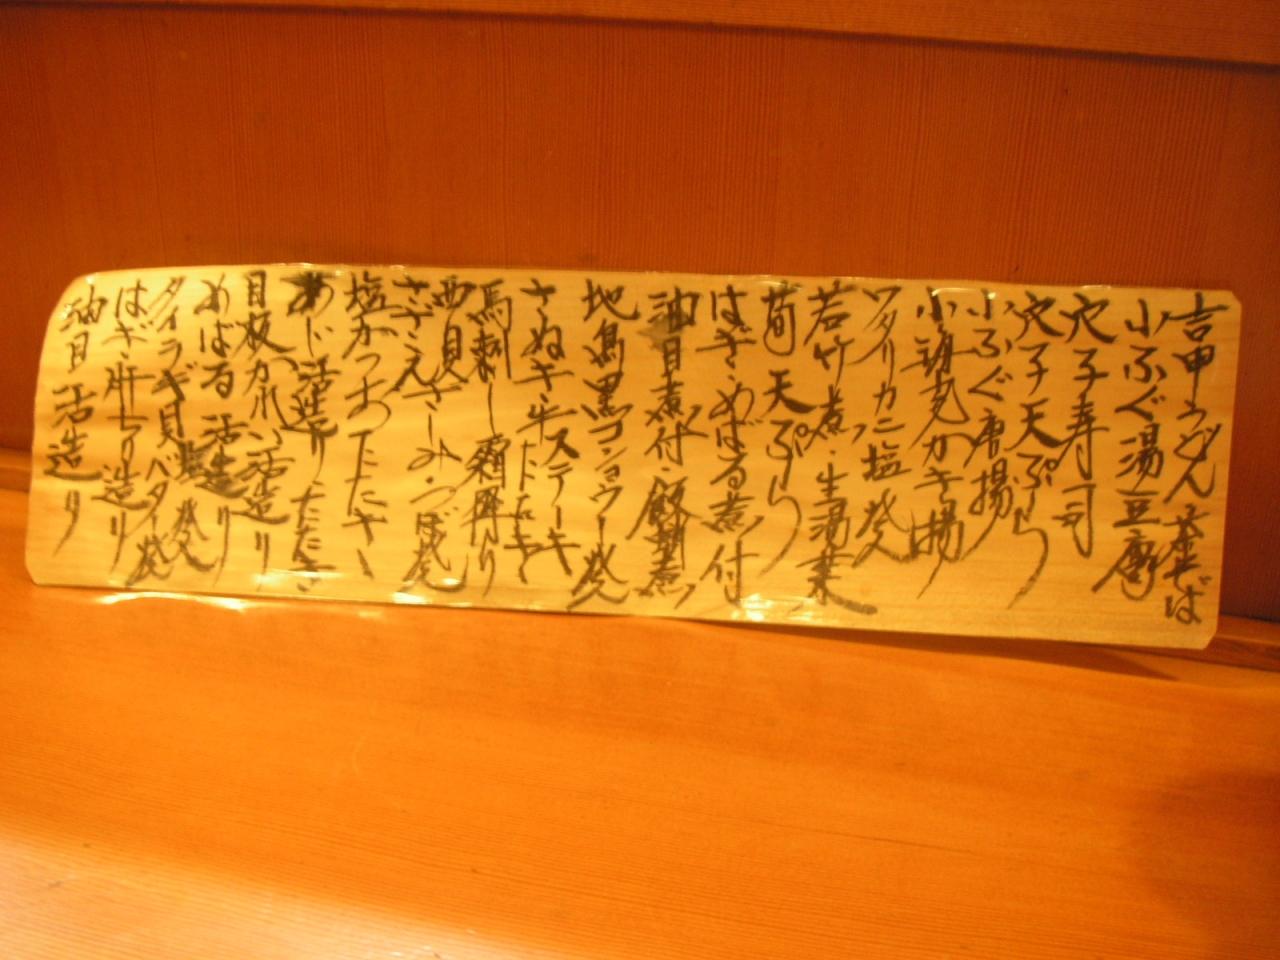 吉申うどん・茶そば
小ふぐ湯豆腐
穴子寿司
穴子天ぷら
小ふぐ唐揚
小海老かき揚
ワタリカニ塩焼
若竹煮・生湯葉
筍天ぷら
はぎ・めばる煮付
油目煮付・飯蛸煮
地鶏黒コショウ焼
さぬき牛ステーキ
たたき
馬刺し霜降り
西貝さしみ・つぼ焼
さざえ
塩かつおたたき
あじ活造りたたき
目板かれい活造り
めばる活造り
タイラギ貝バター焼
はぎ肝造り
油目活造り